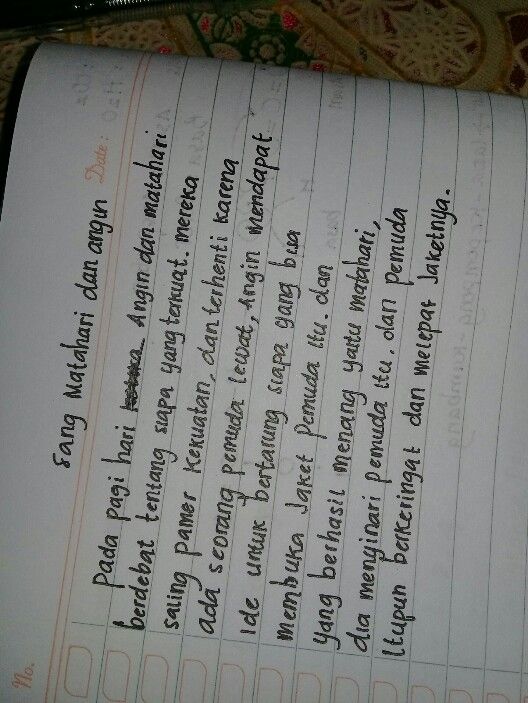 No.
Date:
Sang Matahari dan angin
Pada pagi hari Angin dan matahari
berdebat tentang siapa yang terkuat. mereka
saling pamer kekuatan, dan terhenti karena
ada seorang pemuda lewat, Angin mendapat
Ide untuk bertarung siapa yang bisa
membuka Jaket Pemuda itu. dan
yang berhasil menang yaitu matahari,
dia menyinari pemuda itu. dan pemuda
Itupun berkeringat dan melepat Jaketnya.